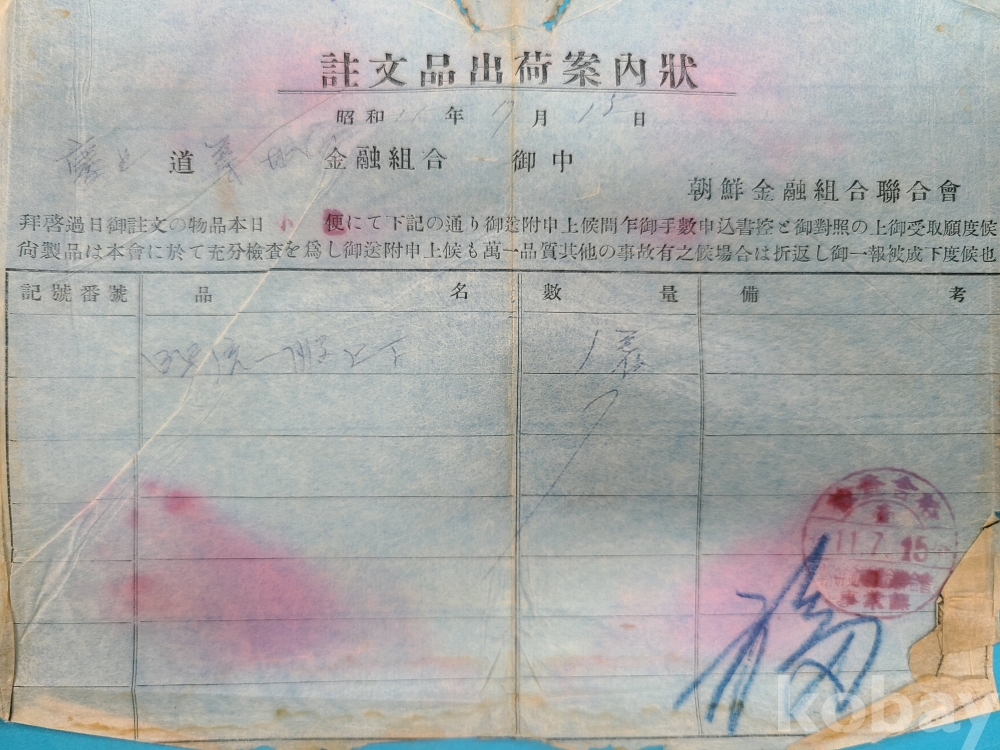 註文品出荷案內狀
昭和 11 年 7 月 15 日
道 金融組合 御中
朝鮮金融組合聯合會
拜啓過日御註文の物品本日 小 便にて下記の通り御送附申上候間乍御手數申込書控と御對照の上御受取願度候
尙製品は本會に於て充分檢査を爲し御送附申上候も萬一品質其他の事故有之候場合は折返し御一報被成下度候也
記號番號 品名 數量 備考
1
11.7.15
事業課
kobay